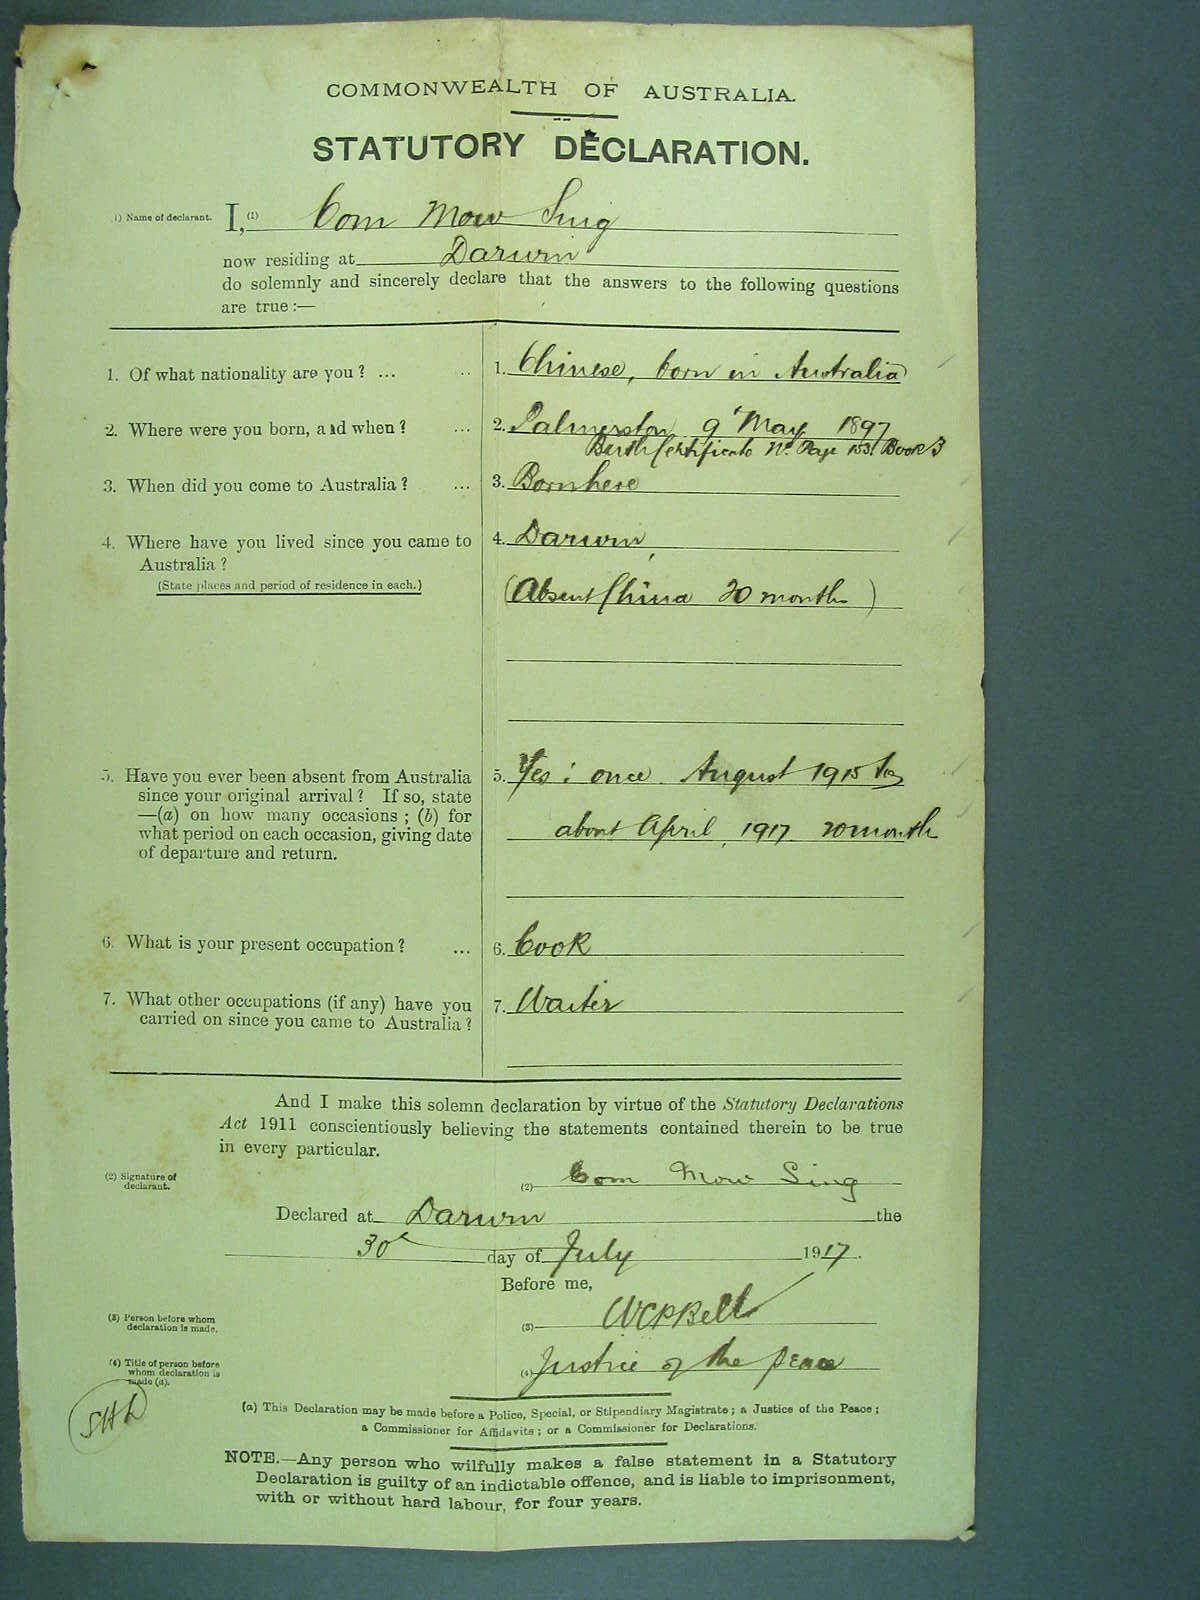 COMMONWEALTH OF AUSTRALIA.
STATUTORY DECLARATION.
1) Name of declarant. I, (1) Com Mow Sing
now residing at Darwin
do solemnly and sincerely declare that the answers to the following questions
are true :—
1. Of what nationality are you ? ... .. 1. Chinese, born in Australia
2. Where were you born, and when ? ... 2. Palmerston 9th May 1897
Birth Certificate No. Page 153 Book 3
3. When did you come to Australia ? ... 3. Born here
4. Where have you lived since you came to 4. Darwin,
Australia ?
(State places and period of residence in each.) (Absent China 20 months)
5. Have you ever been absent from Australia 5. Yes: once. August 1915 to
since your original arrival ? If so, state
—(a) on how many occasions ; (b) for about April, 1917. 20 months
what period on each occasion, giving date
of departure and return.
6. What is your present occupation ? ... 6. Cook
7. What other occupations (if any) have you 7. Waiter
carried on since you came to Australia ?
And I make this solemn declaration by virtue of the Statutory Declarations
Act 1911 conscientiously believing the statements contained therein to be true
in every particular.
(2) Signature of
declarant. (2) Com Mow Sing
Declared at Darwin the
30th day of July 1917.
Before me,
(3) Person before whom
declaration is made. (3)
(4) Title of person before
whom declaration is
made (a). (4) Justice of the Peace
(a) This Declaration may be made before a Police, Special, or Stipendiary Magistrate ; a Justice of the Peace ;
a Commissioner for Affidavits ; or a Commissioner for Declarations.
NOTE.—Any person who wilfully makes a false statement in a Statutory
Declaration is guilty of an indictable offence, and is liable to imprisonment,
with or without hard labour, for four years.